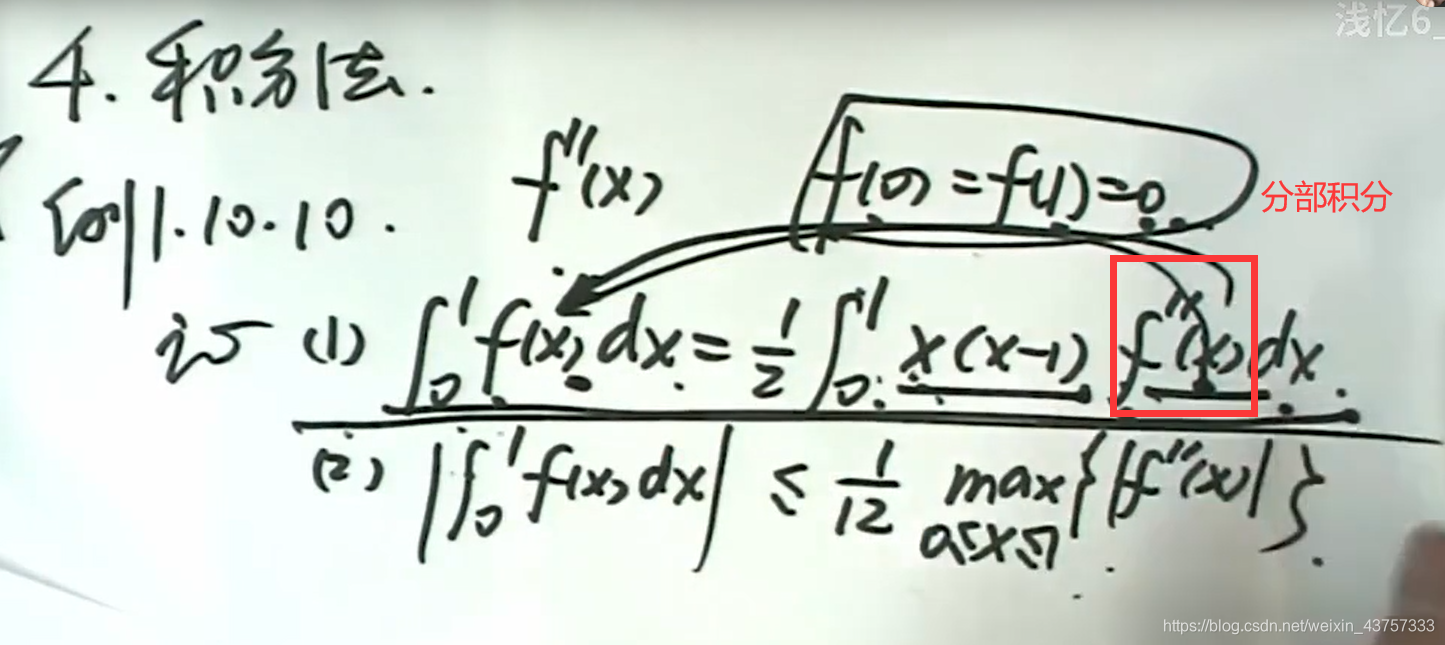 浅忆6_
4. 积分法.
例1.10.10. f''(x) f(0)=f(1)=0. 分部积分
证 (1) ∫₀¹ f(x) dx = 1/2 ∫₀¹ x(x-1) f''(x) dx.
(2) |∫₀¹ f(x) dx| ≤ 1/12 max{|f''(x)|}.
0≤x≤1
https://blog.csdn.net/weixin_43757333